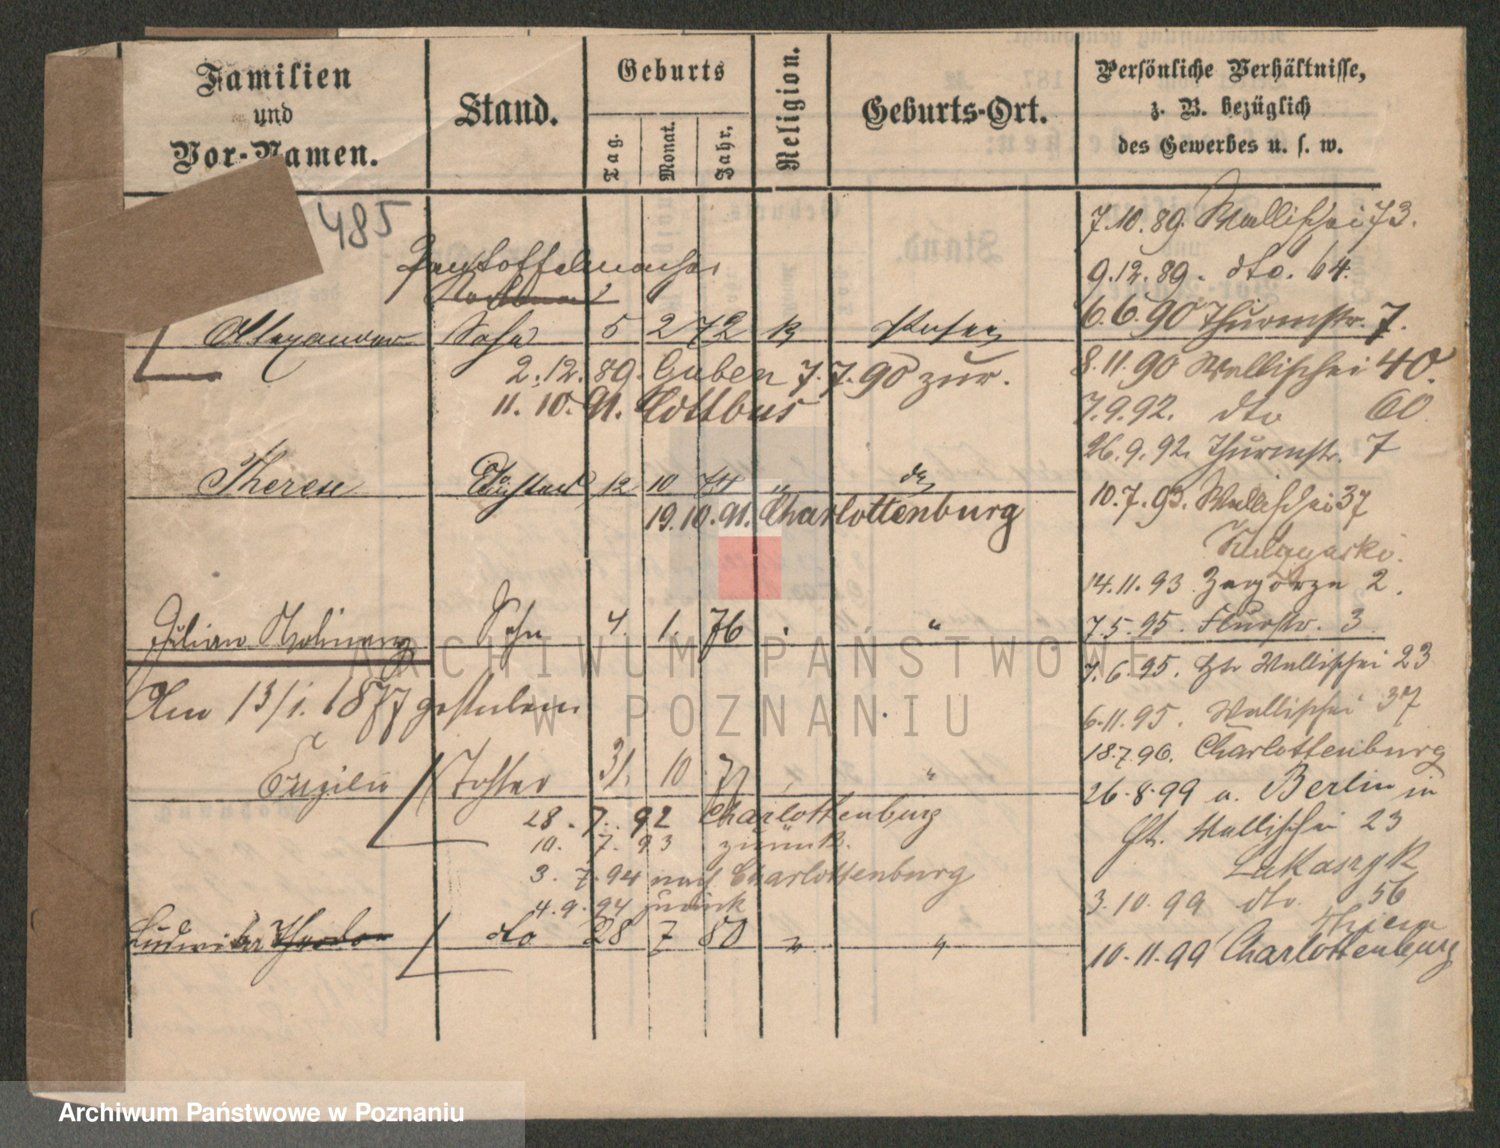 Familien
und
Vor-Namen.
Stand.
Geburts
Tag.
Monat.
Jahr.
Religion.
Geburts-Ort.
Persönliche Verhältnisse,
z. B. bezüglich
des Gewerbes u. s. w.
485
Pantoffelmacher
Alexander Sohn 5 2 72 k Posen
2.12.89. Guben 7.7.90 zur.
11. 10. 91. Cottbus
Therese 12 10 74 " do
19.10.91. Charlottenburg
Julian Sohn 4. 1. 76 "
Am 13/1. 1877 gestorben
Tochter 31. 10 77 "
28. 7. 92 Charlottenburg
10. 7. 93 zurück.
3. 7. 94 nach Charlottenburg
4. 9. 94 zurück
Ludwika do 28 7 80 " "
7.10.89. Wallischei 73.
9.12.89. dto. 64.
6.6.90 Thurmstr. 7.
8.11.90 Wallischei 40.
7.9.92. dto 60
26.9.92. Thurmstr. 7
10.7.93. Wallischei 37
14.11.93 Zagorze 2.
7.5.95. Flurstr. 3.
7.6.95. Wallischei 23
6.11.95. Wallischei 37
18.7.96. Charlottenburg
26.8.99 a. Berlin in
Wallischei 23
Lukaszyk
3.10.99 dto. 56
10.11.99 Charlottenburg
ARCHIWUM PAŃSTWOWE
W POZNANIU
Archiwum Państwowe w Poznaniu